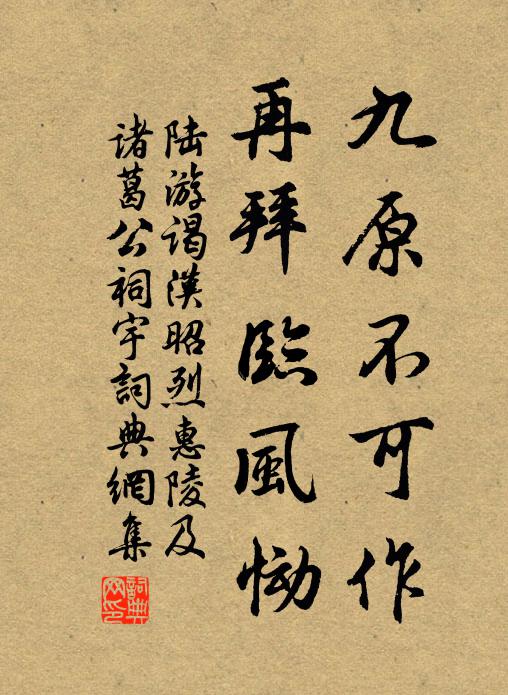 九原不可作
再拜臨風慟
陆游謁漢昭烈惠陵及
诸葛公祠宇詞典網集
詞典网印